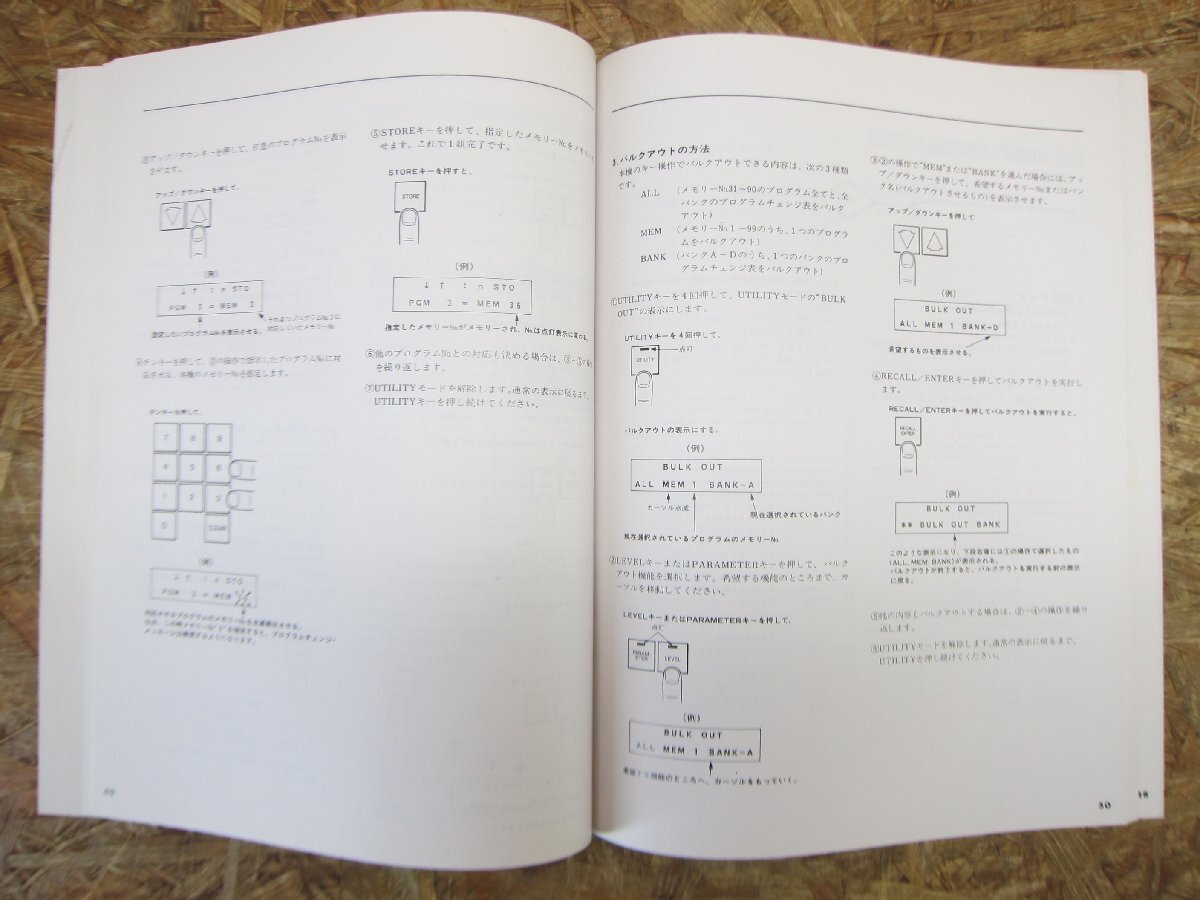 ③アップ/ダウンキーを押して、任意のプログラムNo.を表示
させます。
アップ/ダウンキーを押して、
(例)
↓ ↑ : n STO
PGM 3 = MEM 3
指定したいプログラムNo.を表示させる。
④テンキーを押して、③の操作で指示したプログラムNo.に対
応させる、本機のメモリーNo.を指定します。
テンキーを押して、
7 8 9
4 5 6
1 2 3
0 CLEAR
(例)
↓ ↑ : n STO
PGM 3 = MEM
49
⑤STOREキーを押して、指定したメモリーNo.をメモリー
せます。これで1組完了です。
STOREキーを押すと、
STORE
(例)
↓ ↑ : n STO
PGM 3 = MEM 36
指定したメモリーNo.がメモリーされ、No.は点灯表示に変わる。
⑥他のプログラムNo.との対応も決める場合は、③~⑤の操作
を繰り返します。
⑦UTILITYモードを解除します。通常の表示に戻るまで、
UTILITYキーを押し続けてください。
3.バルクアウトの方法
本機のキー操作でバルクアウトできる内容は、次の3種類
です。
ALL (メモリーNo.31~90のプログラム全てと、全
バンクのプログラムチェンジ表をバルク
アウト)
MEM (メモリーNo.1~99のうち、1つのプログラ
ムをバルクアウト)
BANK (バンクA-Dのうち、1つのバンクのプロ
グラムチェンジ表をバルクアウト)
①UTILITYキーを4回押して、UTILITYモードの"BULK
OUT"の表示にします。
UTILITYキーを4回押して、
点灯
UTILITY
バルクアウトの表示にする。
(例)
BULK OUT
ALL MEM 1 BANK-A
カーソル点滅
現在選択されているバンク
現在選択されているプログラムのメモリーNo.
②LEVELキーまたはPARAMETERキーを押して、バルク
アウト機能を選択します。希望する機能のところまで、カ
ーソルを移動してください。
LEVELキーまたはPARAMETERキーを押して、
点灯
PARAM
ETER
LEVEL
(例)
BULK OUT
ALL MEM 1 BANK-A
希望する機能のところへ、カーソルをもっていく。
③②の操作で"MEM"または"BANK"を選んだ場合には、アッ
プ/ダウンキーを押して、希望するメモリーNo.またはバン
ク名(バルクアウトさせるもの)を表示させます。
アップ/ダウンキーを押して
(例)
BULK OUT
ALL MEM 1 BANK-D
希望するものを表示させる。
④RECALL/ENTERキーを押してバルクアウトを実行し
ます。
RECALL/ENTERキーを押してバルクアウトを実行すると、
RECALL
ENTER
(例)
BULK OUT
** BULK OUT BANK
このような表示になり、下段右端には③の操作で選択したもの
(ALL, MEM, BANK)が表示される。
バルクアウトが終了すると、バルクアウトを実行する前の表示
に戻る。
⑤他の内容もバルクアウトする場合は、②~④の操作を繰り
返します。
⑥UTILITYモードを解除します。通常の表示に戻るまで、
UTILITYを押し続けてください。
50